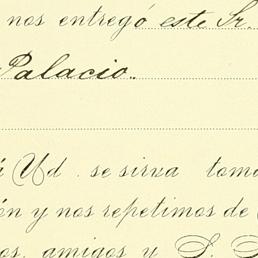 nos entregó este Sr.
Palacio.
Ud. se sirva toma
ón y nos repetimos de
os, amigos y S. S.